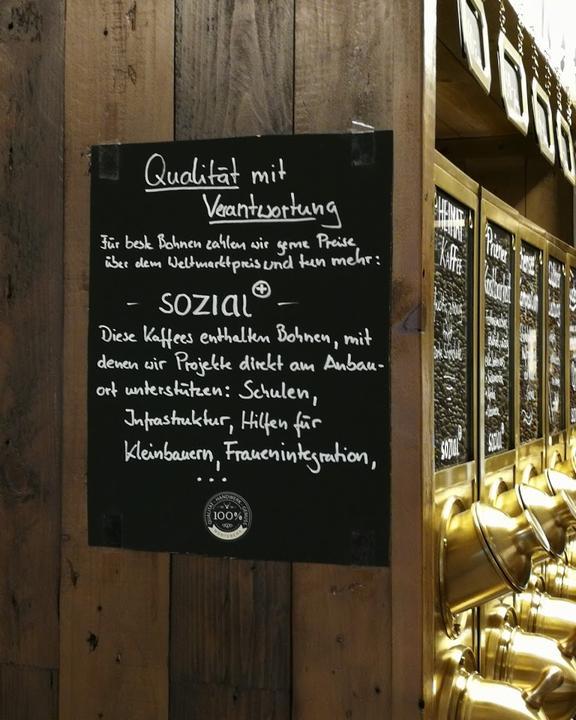 Qualität mit
Verantwortung
Für beste Bohnen zahlen wir gerne Preise
über dem Weltmarktpreis und tun mehr:
- sozial⊕ -
Diese Kaffees enthalten Bohnen, mit
denen wir Projekte direkt am Anbau-
ort unterstützen: Schulen,
Infrastruktur, Hilfen für
Kleinbauern, Frauenintegration,
...
QUALITÄT HANDWERK GENUSS
100%
HEIMAT
Kaffee
sozial
sozial